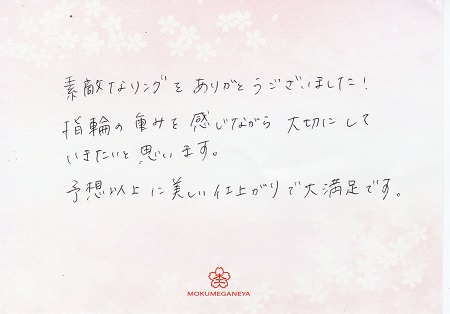 素敵なリングをありがとうございました!
指輪の重みを感じながら 大切にして
いきたいと思います。
予想以上に美しい仕上がりで大満足です。
MOKUMEGANEYA